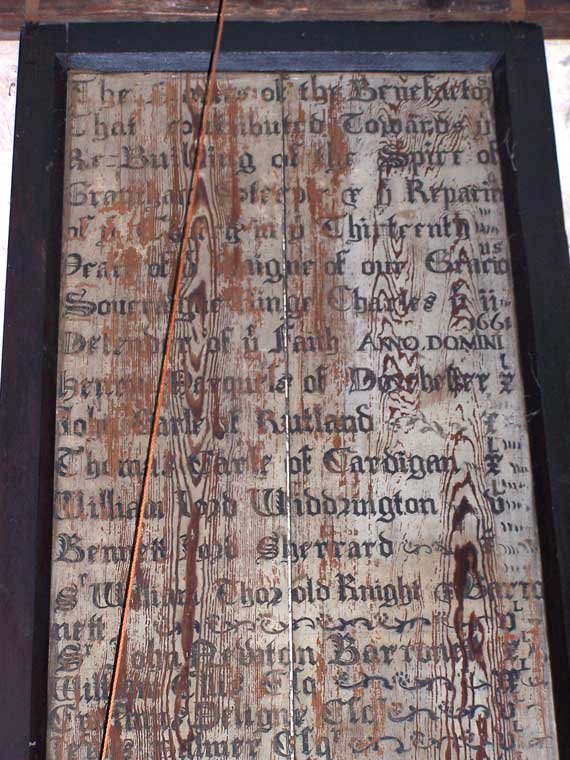 The Names of the Benefactors
That contributed Towards yͤ
Re=Building of the Spire of
Grantham Steeple & yͤ Repairing
of yͤ in yͤ Thirteenth
Yeare of yͤ Raigne of our Gracious
Soueraigne Kinge Charles yͤ ii
Defender of yͤ Faith ANNO DOMINI 1661
Henry Marquess of Dorchester
John Earle of Rutland
Thomas Earle of Cardigan
William Lord Widdrington
Bennett Lord Sherrard
Sʳ William Thorold Knight & Barro
nett
Sʳ John Newton Barronet
William Ellis Esqʳ
Deligne Esqʳ
Palmer Esqʳ